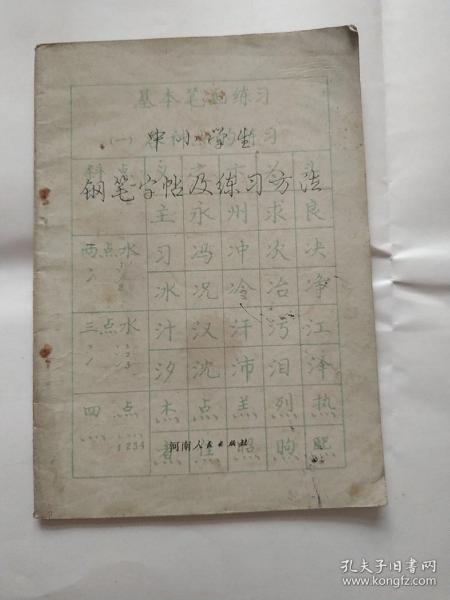 基本笔画练习
(一)
中小学生
习
钢笔字帖及练习方法
斜点
主永州求良
两点水 习冯冲次决
冰况冷冶净
三点水 汁汉汗污江
汐沈沛泪泽
四点 杰点羔烈热
1234
河南人民出版社
照煦熙
孔夫子旧书网
www.kongfz.com